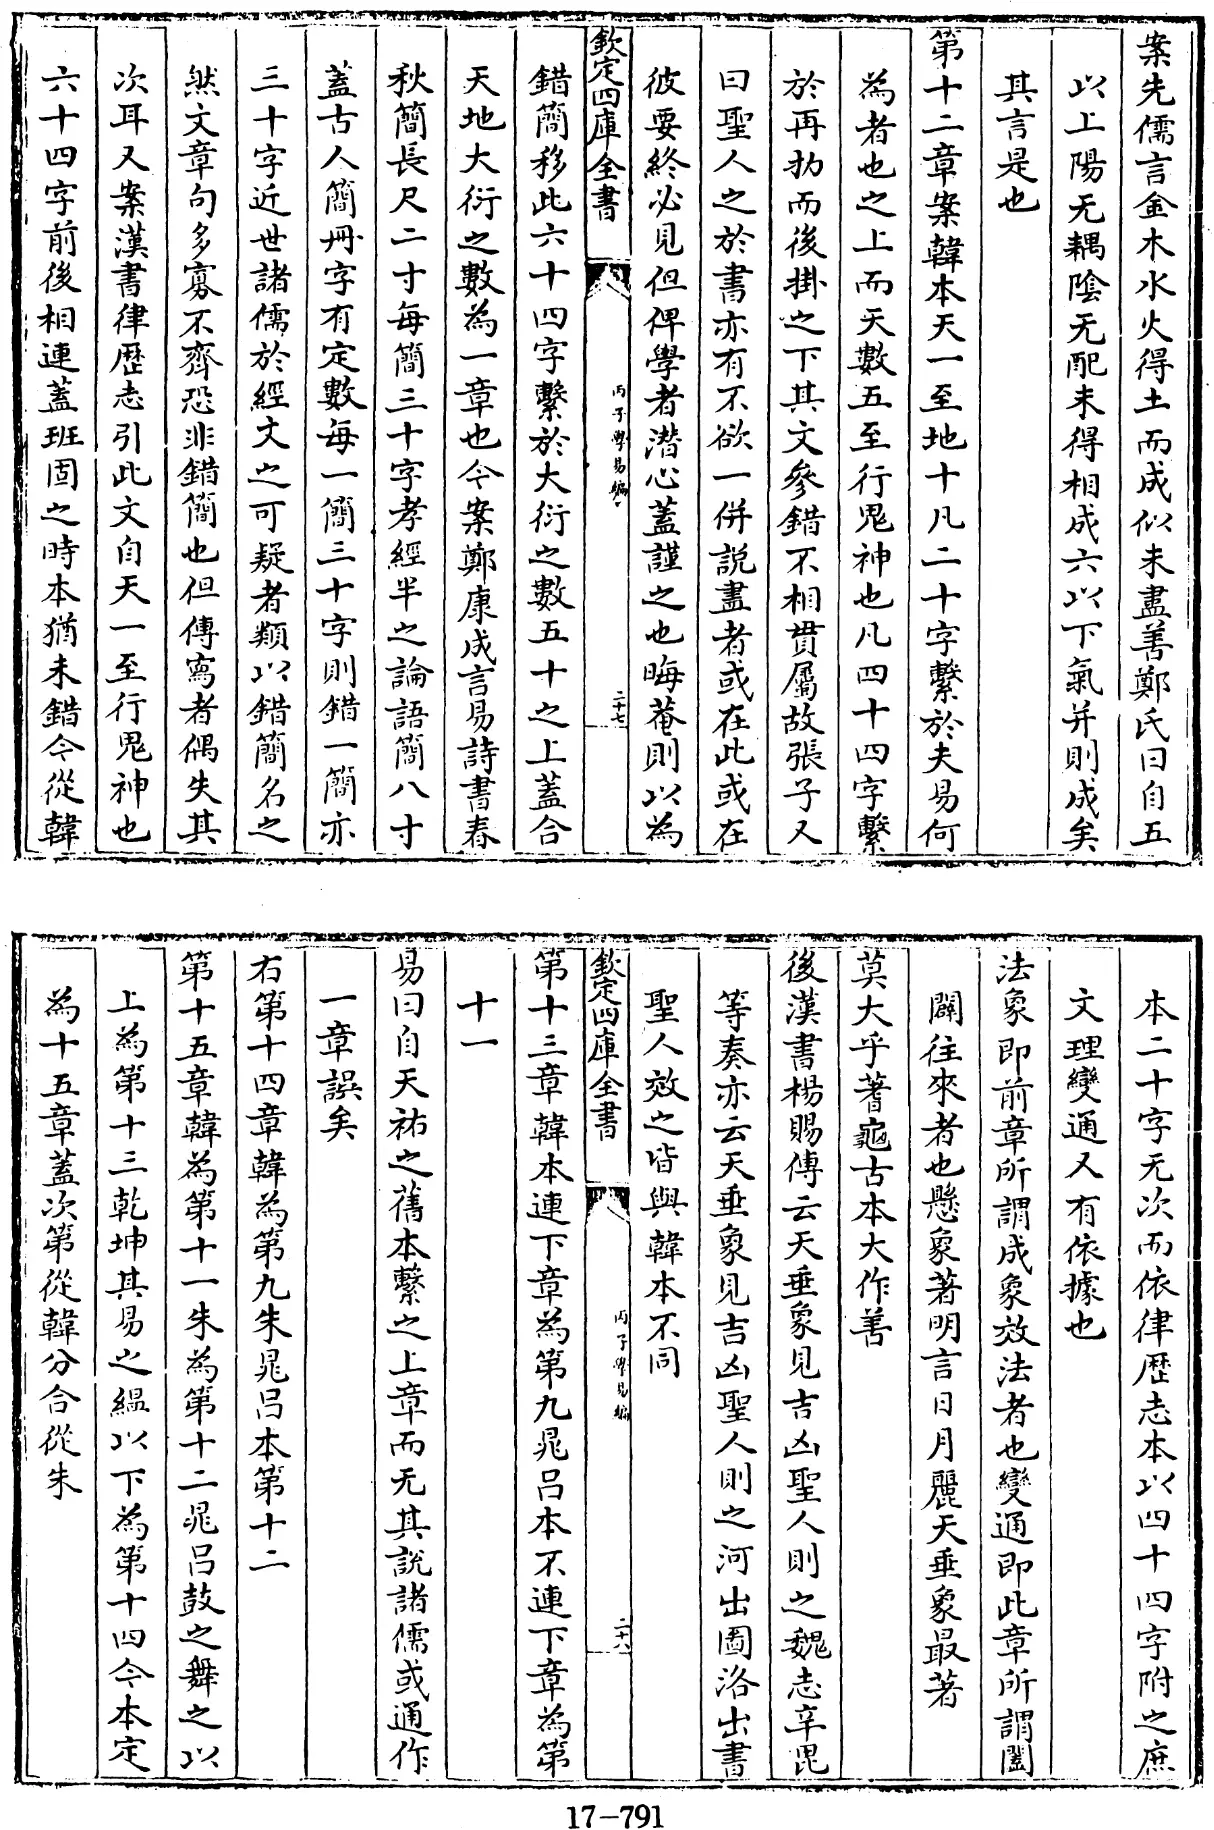 案先儒言金木水火得土而成似未盡善鄭氏曰自五
以上陽无耦陰无配未得相成六以下氣并則成矣
其言是也
第十二章案韓本天一至地十凡二十字繫於夫易何
為者也之上而天數五至行鬼神也凡四十四字繫
於再扐而後掛之下其文參錯不相貫屬故張子又
曰聖人之於書亦有不欲一併說盡者或在此或在
彼要終必見但俾學者潛心蓋謹之也晦菴則以為
欽定四庫全書
丙子學易編
二十七
錯簡移此六十四字繫於大衍之數五十之上蓋合
天地大衍之數為一章也今案鄭康成言易詩書春
秋簡長尺二寸每簡三十字孝經半之論語簡八寸
蓋古人簡冊字有定數每一簡三十字則錯一簡亦
三十字近世諸儒於經文之可疑者類以錯簡名之
然文章句多寡不齊恐非錯簡也但傳寫者偶失其
次耳又案漢書律歷志引此文自天一至行鬼神也
六十四字前後相連蓋班固之時本猶未錯今從韓
本二十字无次而依律歷志本以四十四字附之庶
文理變通又有依據也
法象即前章所謂成象效法者也變通即此章所謂闔
闢往來者也懸象著明言日月麗天垂象最著
莫大乎蓍龜古本大作善
後漢書楊賜傳云天垂象見吉凶聖人則之魏志辛毘
等奏亦云天垂象見吉凶聖人則之河出圖洛出書
聖人效之皆與韓本不同
欽定四庫全書
丙子學易編
二十八
第十三章韓本連下章為第九晁呂本不連下章為第
十一
易曰自天祐之舊本繫之上章而无其說諸儒或通作
一章誤矣
右第十四章韓為第九朱晁呂本第十二
第十五章韓為第十一朱為第十二晁呂鼓之舞之以
上為第十三乾坤其易之縕以下為第十四今本定
為十五章蓋次第從韓分合從朱
17-791